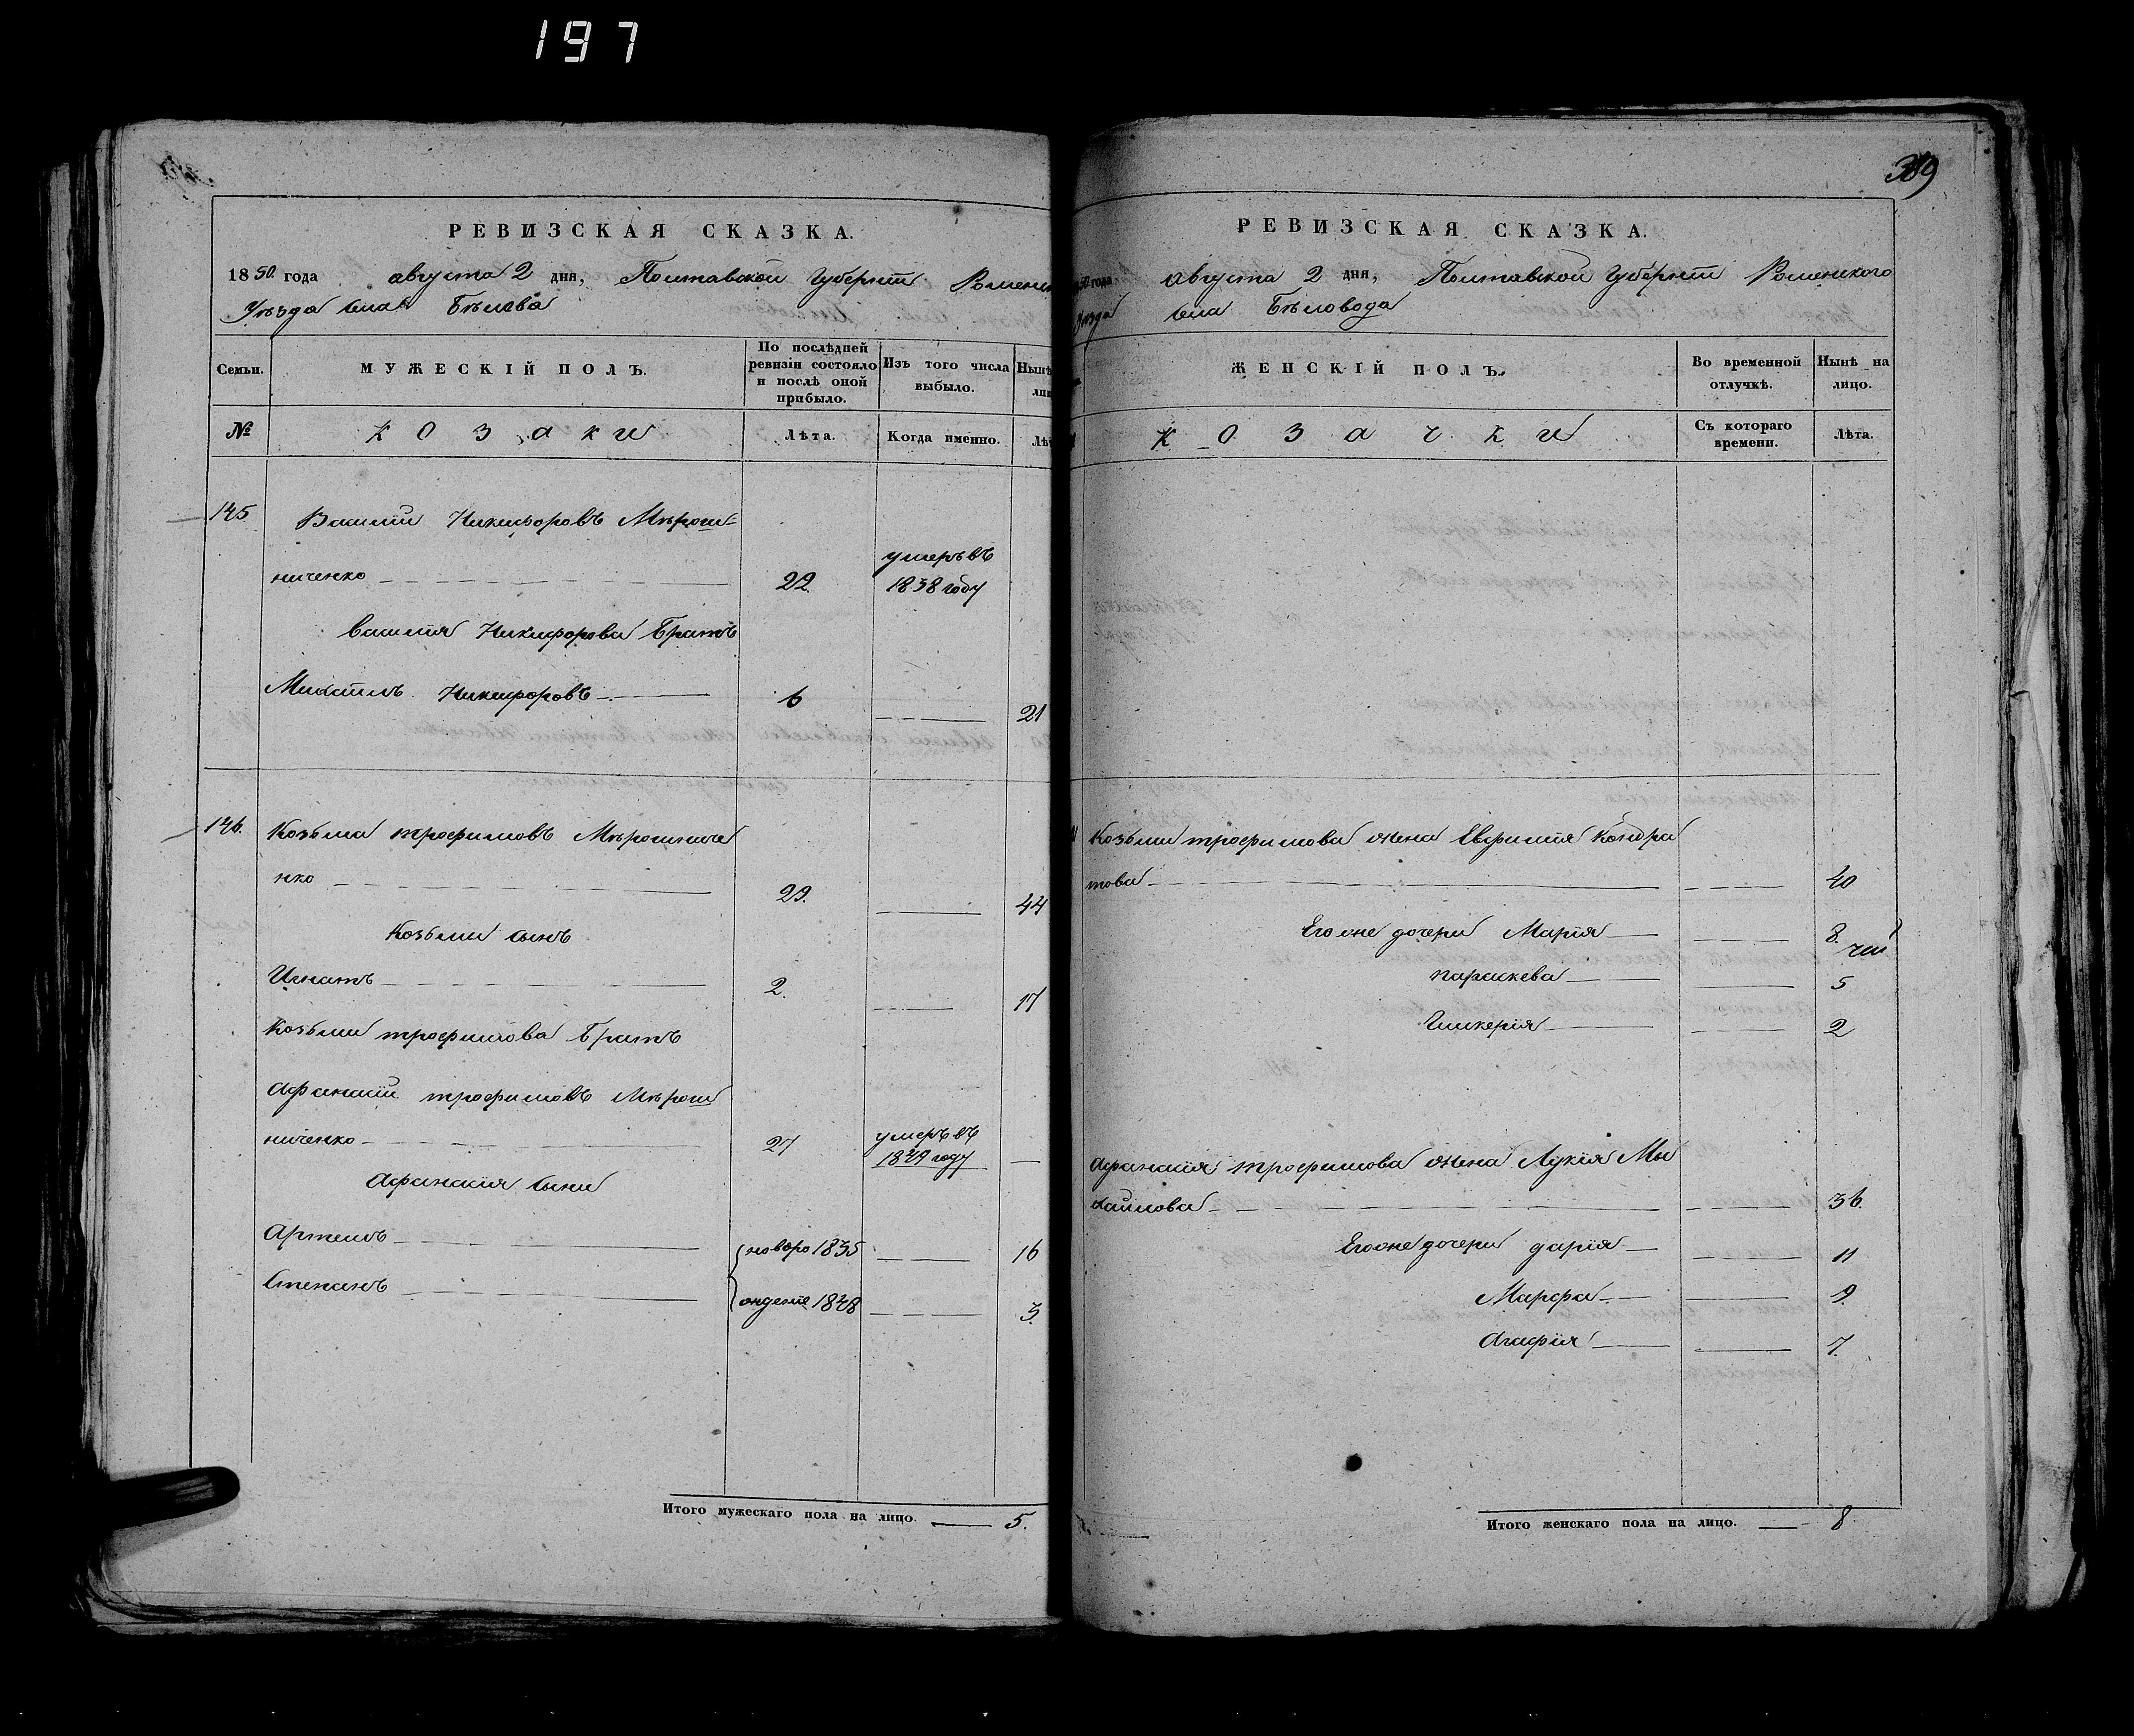 197
389
РЕВИЗСКАЯ СКАЗКА.
1850. года августа 2 дня, Полтавской Губернии Роменс
Уѣзда села Бѣлова
Семьи.
МУЖЕСКІЙ ПОЛЪ.
По послѣдней ревизіи состояло и послѣ оной прибыло.
Изъ того числа выбыло.
Нынѣ
№
козаки
Лѣта.
Когда именно.
145 Василий Никифоровъ Мѣрош=
ниченко 22. умеръ въ 1838 году
Василія Никифорова Братъ
Михаилъ Никифоровъ 6 21
146. Козьма трофимовъ Мѣрошниче
нко 29. 44
Козьмы сынъ
Игнатъ 2. 17
Козьмы трофимова Братъ
Афанасий трофимовъ Мѣрош
ниченко 27 умеръ въ 1849 году
Афанасия сыны
Артемъ новоро 1835 16
Степанъ ждение 1848 3.
Итого мужескаго пола на лицо. 5.
РЕВИЗСКАЯ СКАЗКА.
года августа 2 дня, Полтавской Губернии Роменского
Уѣзда села Бѣловода
ЖЕНСКІЙ ПОЛЪ.
Во временной отлучкѣ.
Нынѣ на лицо.
козачки
Съ котораго времени.
Лѣта.
Козьмы трофимова жена Евфимія Кондра
това 40
Его же дочери Марія 8.
параскева 5
Гликерія 2
Афанасия трофимова жена Лукія Ми
хайлова 36.
Его же дочери дарія 11
Марфа 9.
Агафія 7.
Итого женскаго пола на лицо. 8